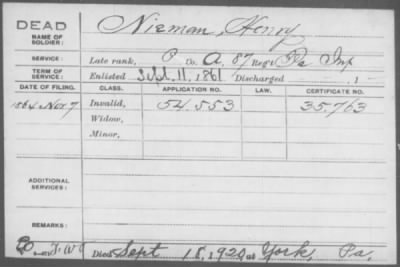 DEAD
NAME OF SOLDIER: Nieman, Henry
SERVICE: Late rank, P Co. A, 87 Reg't Pa Inf
TERM OF SERVICE: Enlisted Sept. 11, 1861 Discharged , 1
DATE OF FILING. CLASS. APPLICATION NO. LAW. CERTIFICATE NO.
1864 Nov 7 Invalid, 54.553 35.763
Widow,
Minor,
ADDITIONAL SERVICES:
REMARKS:
Died Sept 18, 1920, at York, Pa.